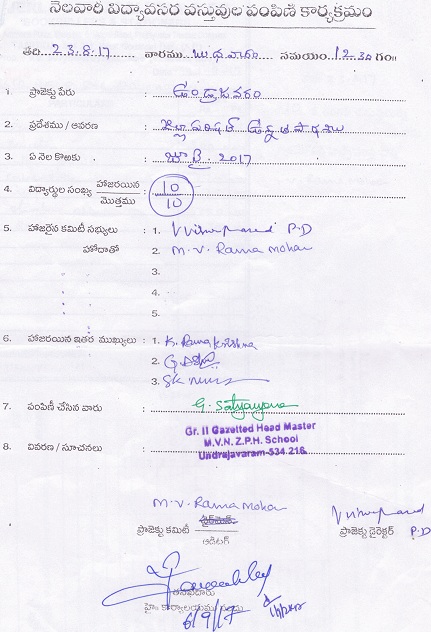 నెలవారీ విద్యావసర వస్తువుల పంపిణీ కార్యక్రమం
తేది 23.8.17 వారము బుధవారం సమయం 12.30 గం॥
1. ప్రాజెక్టు పేరు : ఉండ్రాజవరం
2. ప్రదేశము / ఆవరణ : జిల్లా పరిషత్ ఉన్నత పాఠశాల
3. ఏ నెల కొఱకు : జూలై. 2017
4. విద్యార్థుల సంఖ్య హాజరయిన / మొత్తము : 10/10
5. హాజరైన కమిటీ సభ్యులు : 1. P.D
హోదాతో 2. M.V. Rama Mohan
3.
4.
5.
6. హాజరయిన ఇతర ముఖ్యులు : 1. K. Ramakrishna
2.
3. SK
7. పంపిణీ చేసిన వారు : G. Satyanarayana
Gr. II Gazetted Head Master
M.V.N. Z.P.H. School
Undrajavaram-534 216.
8. వివరణ / సూచనలు :
M.V. Rama Mohan
ప్రాజెక్టు కమిటీ ఛైర్మన్
ఆడిటర్
ప్రాజెక్టు డైరెక్టర్ P.D
హెం కార్యాలయము
6/9/17